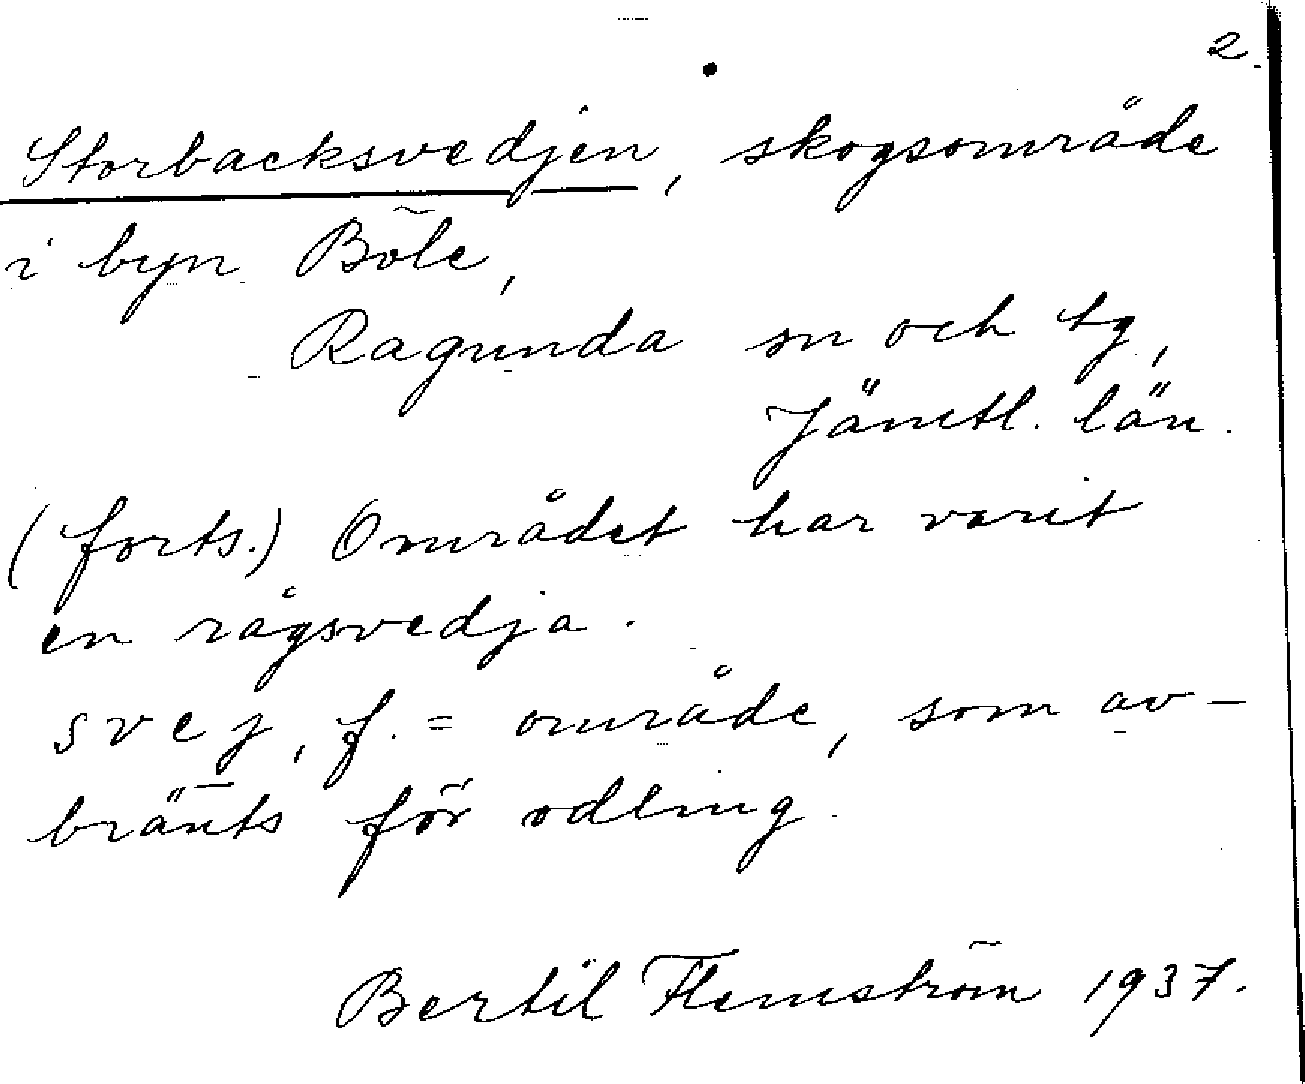 2.
Storbacksvedjen, skogsområde
i byn Böle,
Ragunda sn och tg,
Jämtl. län.
(forts.) Området har varit
en rågsvedja.
svej, f. = område, som av-
bränts för odling.
Bertil Flemström 1937.